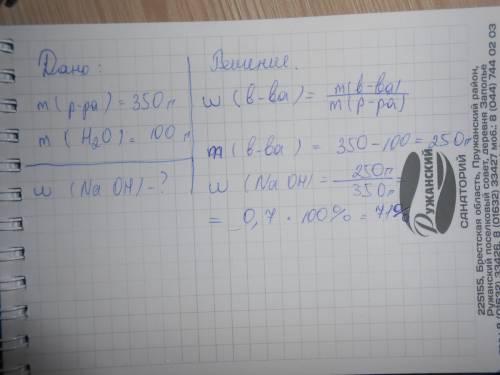 Дано:
m (р-ра) = 350 г
m (H2O) = 100 г
w (NaOH) - ?
Решение.
w (в-ва) = m(в-ва) / m(р-ра)
m (в-ва) = 350 - 100 = 250 г
w (NaOH) = 250 г / 350 г
= 0,7 · 100% = 71%
РУЖАНСКИЙ
САНАТОРИЙ
225155, Брестская область, Пружанский район,
Ружанский поселковый совет, деревня Заполье
8 (01632) 33426, 8 (01632) 33427 моб.: 8 (044) 744 02 03